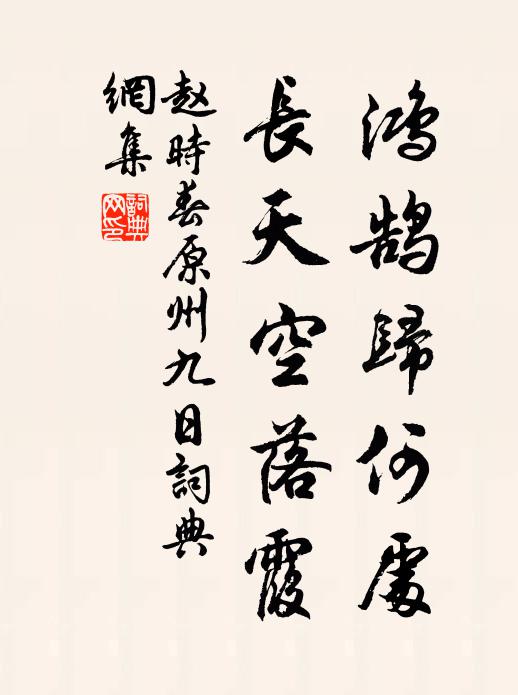 鴻鵠歸何處
長天空落霞
赵時春原州九日詞典
網集
詞典
网印